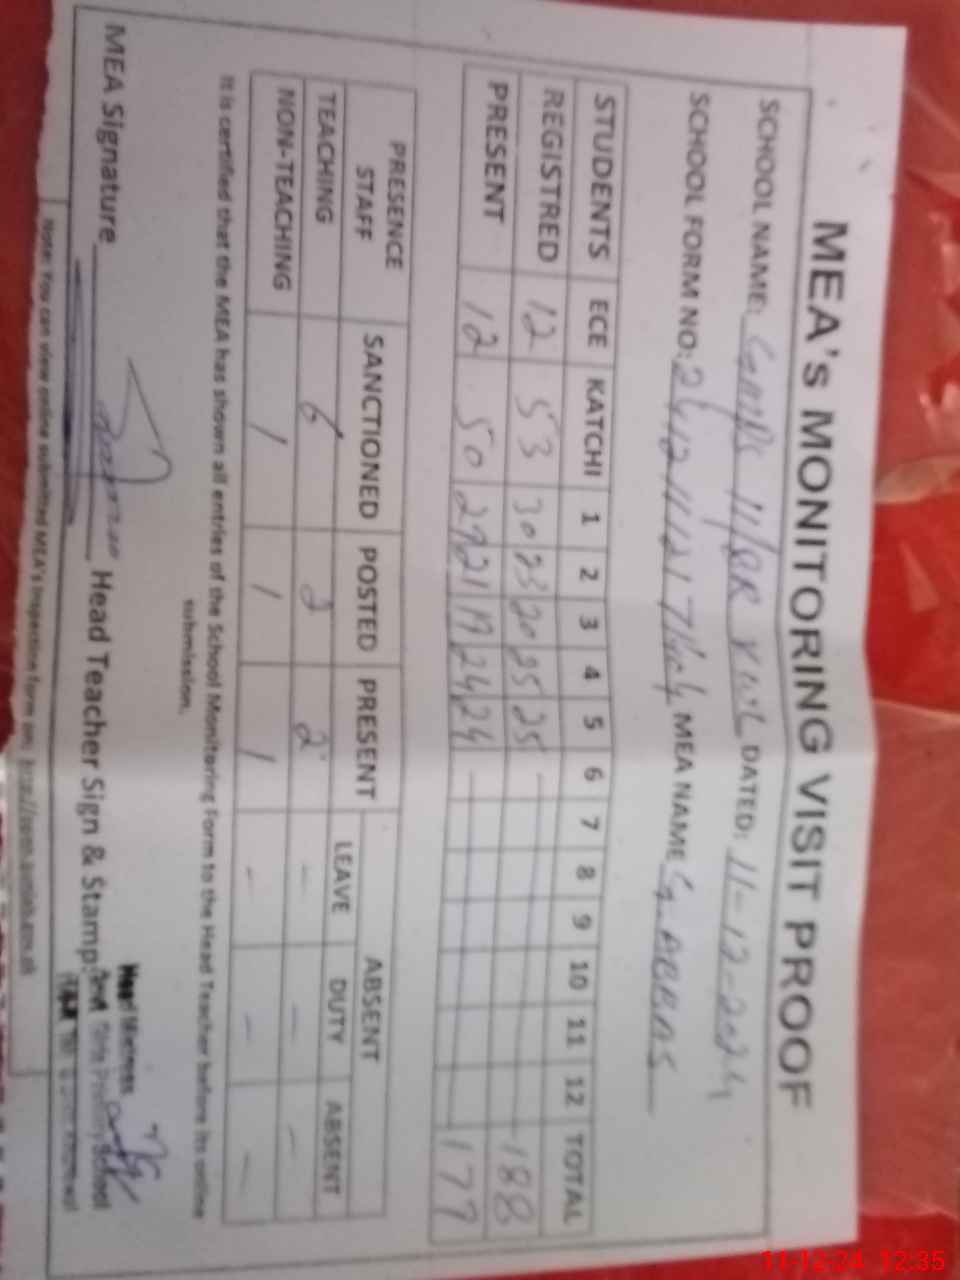 MEA's MONITORING VISIT PROOF
SCHOOL NAME: DATED: 11-12-2024
SCHOOL FORM NO: MEA NAME G. ABBAS
STUDENTS ECE KATCHI 1 2 3 4 5 6 7 8 9 10 11 12 TOTAL
REGISTRED 12 53 30 23 20 25 25 - 188
PRESENT 12 50 29 21 17 24 24 - 177
PRESENCE STAFF SANCTIONED POSTED PRESENT ABSENT
LEAVE DUTY ABSENT
TEACHING 6 2 2 - - -
NON-TEACHING 1 1 1 - - -
It is certified that the MEA has shown all entries of the School Monitoring Form to the Head Teacher before its online
submission.
MEA Signature Head Teacher Sign & Stamp:
Head Mistress
Girls Primary School
Note: You can view online submitted MEA's inspection form on:
11-12-24 12:35